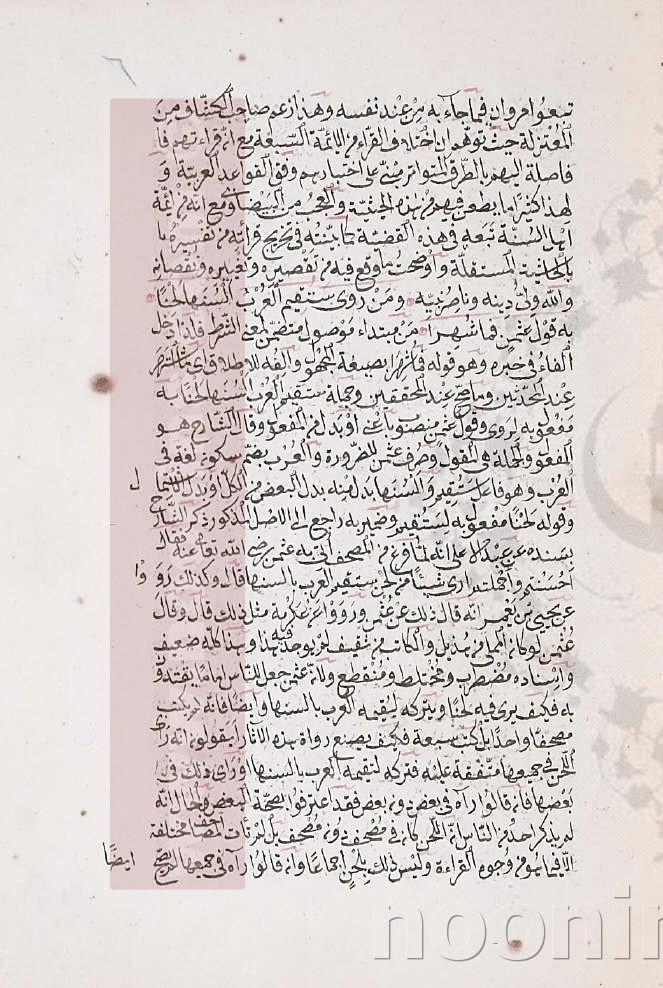 تبعوا مروان فيما جاء به من عند نفسه وهذا زعم صاحب الكشاف من
المعتزلة حيث توهم ان اختلاف القراء من الائمة السبعة مع ان قراءتهم
فاصلة اليهم بالطرق المتواتر مبنى على اختيارهم وفق القواعد العربية و
لهذا كثيرا ما يطعن فيهم من هذه الحيثية والعجب من البيضاوى مع انه من ائمة
اهل السنة تبعه فى هذه القضية كما بينته فى تخريج قراته من تفسيره
بالحاشية المستقلة واوضحت ما وقع فيه من تقصيره وتغييره ونقصانه
والله ولى دينه وناصر نبيه ومن روى ستقيم العرب السنها لحنا
به قول عثمن فما شهرا من مبتداء موصول متضمن لمعنى الشرط فلذا دخل
الفاء فى خبره وهو قوله فما شهرا بصيغة المجهول والفه للاطلاق اى ما اشتهر
عند المحدثين وما صح عند المحققين وجملة ستقيم العرب السنها لحنا به
مفعول به لروى وقول عثمن منصوب باعنى او بدل من المفعول وقال الشارح هو
المفعول والجملة هى المقول وصرف عثمن للضرورة والعرب بضم سكون لغة فى
العرب وهو فاعل ستقيم والسنها بدل منه بدل البعض من الكل او بدل اشتمال
وقوله لحنا مفعول به لستقيم وضمير به راجع الى الاصل المذكور ذكر الشارح
بسنده عن عبد الاعلى انه لما فرغ من المصحف اتى به عثمن رضى الله تعالى عنه فقال
احسنتم واجملتم ارى شيئا من لحن ستقيم العرب بالسنها قال وكذلك روو
عن يحيى بن يعمر انه قال ذلك عن عثمن وروواعن عكرمة مثل ذلك قال وقال
عثمن لو كان المملى من هذيل والكاتب من ثقيف لم يوجد فيه هذا وهذا كله ضعيف
واسناده مضطرب ومختلط ومنقطع ولان عثمن جعل للناس اماما يقتدون
به فكيف يرى فيه لحنا ويتركه ليقيمه العرب بالسنها وايضا فانه لم يكتب
مصحفا واحدا بل كتب سبعة فكيف يصنع رواة هذه الاثار ايقولون انه راى
اللحن فى جميعها متفقة عليه فتركه لتقيمه العرب بالسنها وراى ذلك فى
بعضها فان قالوا رآه فى بعض دون بعض فقد اعترفوا بصحة البعض وحال انه
لم يذكر احد من الناس ان اللحن كان فى مصحف دون مصحف بل لم تات المصاحف مختلفة
الا فيما هو من وجوه القراءة وليس ذلك بلحن اجماعا وان قالوا رآه فى جميعها لم يصح
ايضا